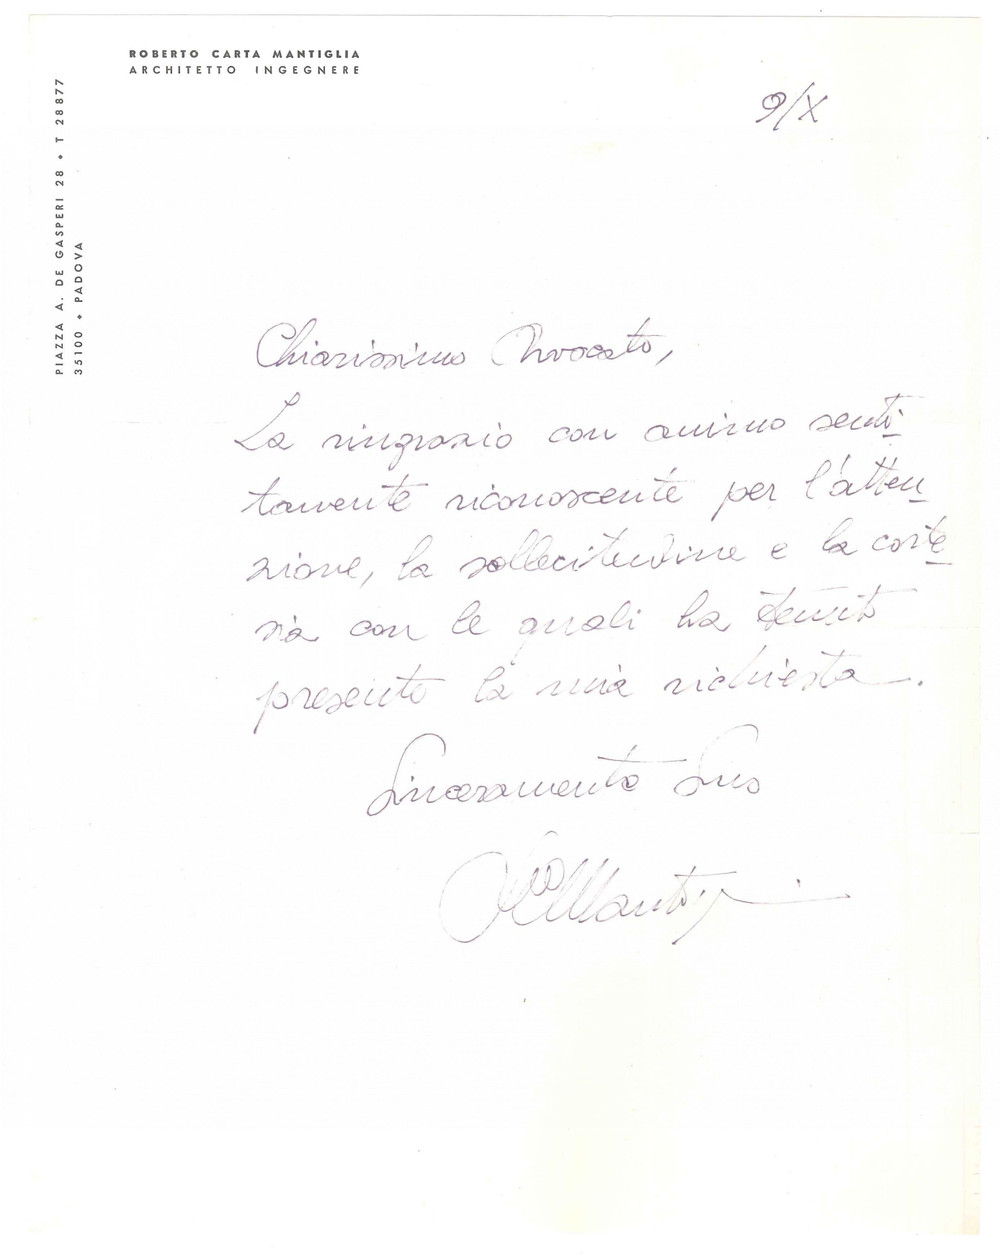 ROBERTO CARTA MANTIGLIA
ARCHITETTO INGEGNERE
PIAZZA A. DE GASPERI 28 • T 28877
35100 • PADOVA
9/X
Chiarissimo Avvocato,
La ringrazio con animo senti-
tamente riconoscente per l'atten-
zione, la sollecitudine e la corte-
sia con le quali ha tenuto
presente la mia richiesta.
Sinceramente Suo